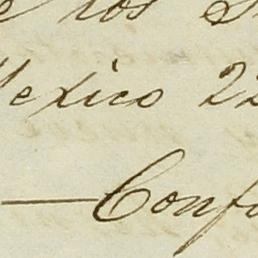 e los
Mexico 22
—Conf